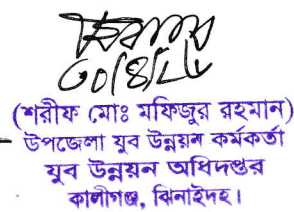 (শরীফ মোঃ মফিজুর রহমান)
উপজেলা যুব উন্নয়ন কর্মকর্তা
যুব উন্নয়ন অধিদপ্তর
কালীগঞ্জ, ঝিনাইদহ।